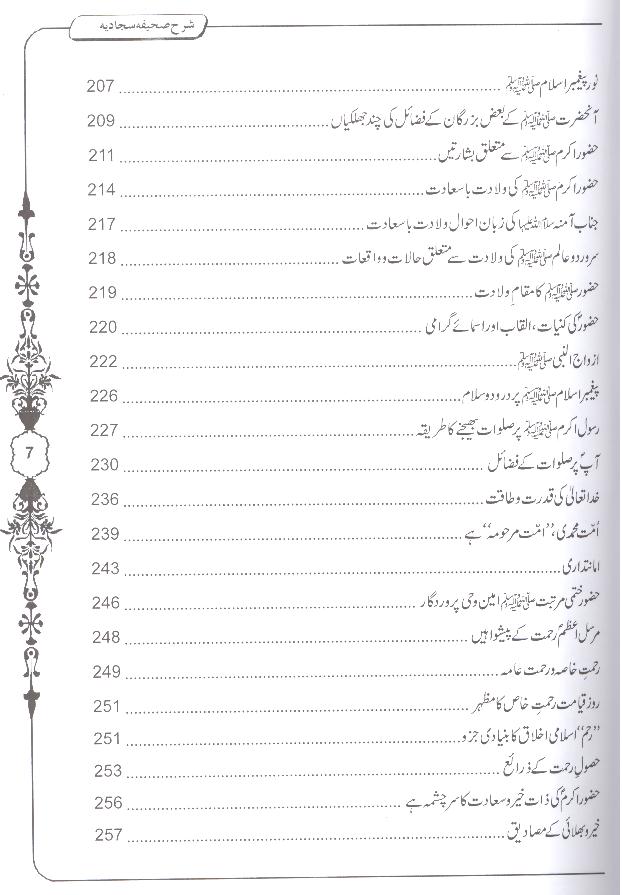 شرح صحیفہ سجادیہ
نور پیغمبر اسلام ﷺ ........ 207
آنحضرت ﷺ کے بعض بزرگان کے فضائل کی چند جھلکیاں ........ 209
حضور اکرم ﷺ سے متعلق بشارتیں ........ 211
حضور اکرم ﷺ کی ولادت باسعادت ........ 214
جناب آمنہ سلام اللہ علیہا کی زبان احوال ولادت باسعادت ........ 217
سرور دو عالم ﷺ کی ولادت سے متعلق حالات و واقعات ........ 218
حضور ﷺ کا مقامِ ولادت ........ 219
حضورؐ کی کنیات، القاب اور اسمائے گرامی ........ 220
ازواج النبی ﷺ ........ 222
پیغمبر اسلام ﷺ پر درود و سلام ........ 226
رسول اکرم ﷺ پر صلوات بھیجنے کا طریقہ ........ 227
آپؐ پر صلوات کے فضائل ........ 230
خدا تعالیٰ کی قدرت و طاقت ........ 236
اُمّت محمدی، ”امّت مرحومہ“ ہے ........ 239
امانتداری ........ 243
حضور ختمی مرتبت ﷺ امین وحی پروردگار ........ 246
مرسل اعظمؐ رحمت کے پیشوا ہیں ........ 248
رحمتِ خاصہ و رحمت عامہ ........ 249
روز قیامت رحمتِ خاص کا مظہر ........ 251
”رحم“ اسلامی اخلاق کا بنیادی جزو ........ 251
حصولِ رحمت کے ذرائع ........ 253
حضور اکرمؐ کی ذات خیر و سعادت کا سرچشمہ ہے ........ 256
خیر و بھلائی کے مصادیق ........ 257
7